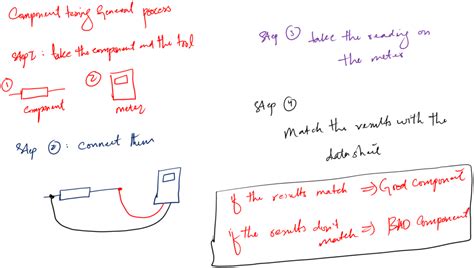 Component tesing General process
Step 1 : take the component and the tool
1
2
component
meter
Step 2 : connect them
Step 3 take the reading on
the meter
Step 4
Match the results with the
datasheet
if the results match => Good Component
if the results don't
match => BAD Component